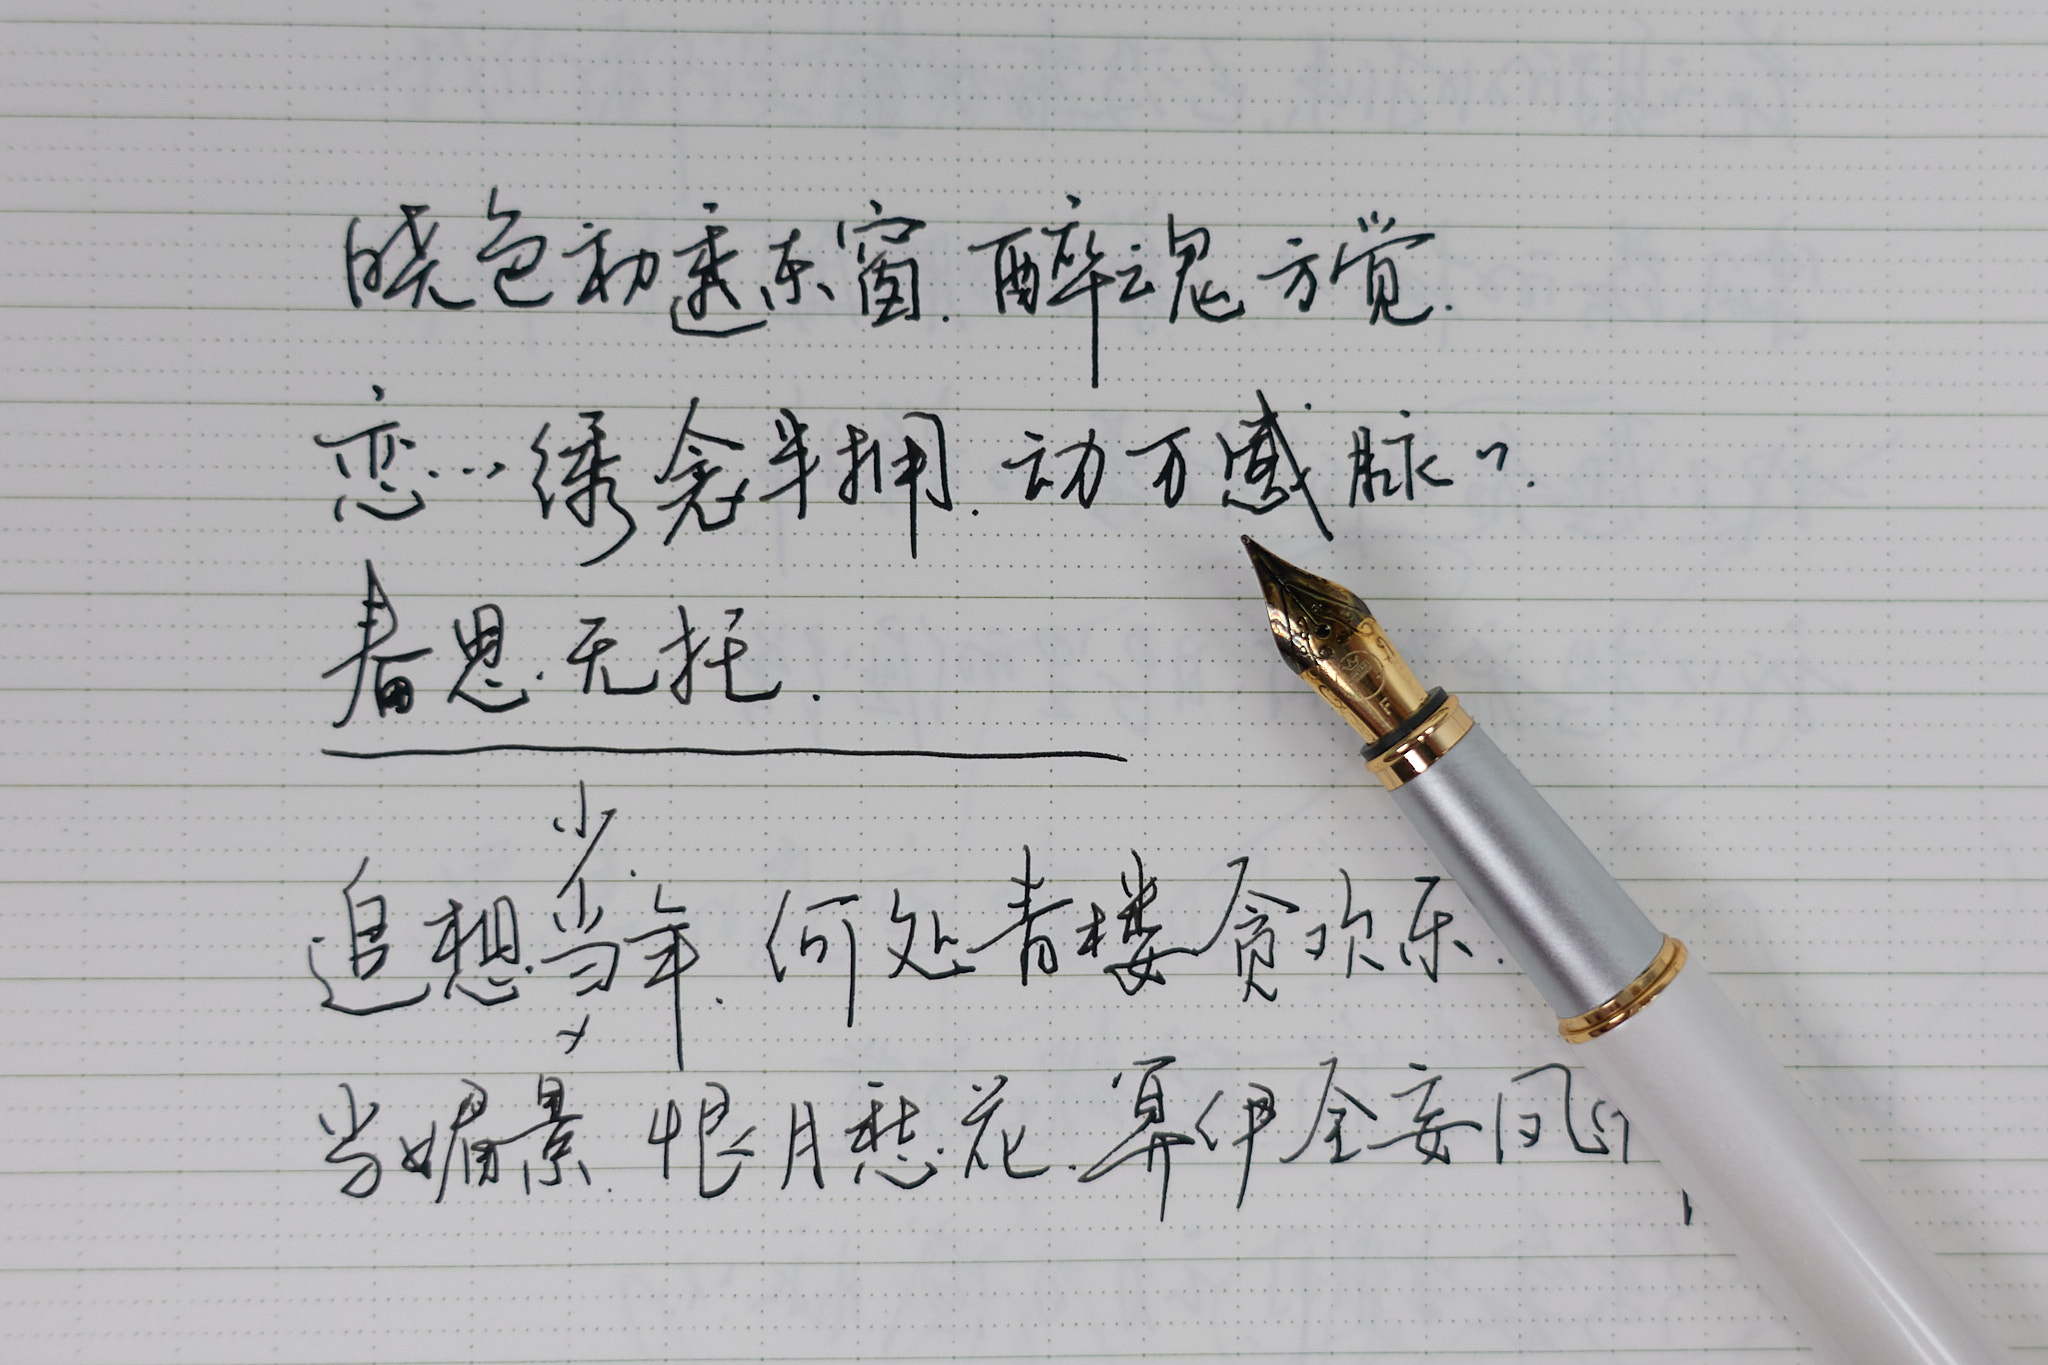 晓色初透东窗.醉魂方觉.
恋〻绣衾半拥.动万感脉〻.
春思无托.
少.
追想当年.何处青楼贪欢乐.
当媚景.恨月愁花.算伊全妄凤
F